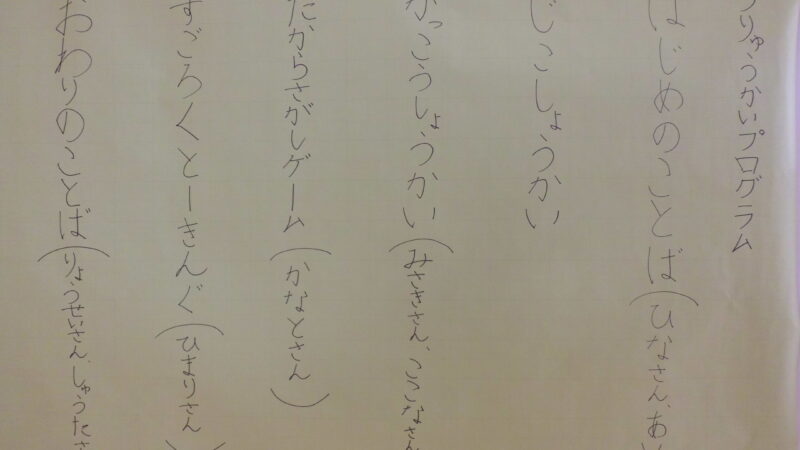 りゅうかいプログラム
はじめのことば(ひなさん、あい
じこしょうかい
がっこうしょうかい(みさきさん、ここなさん
たからさがしゲーム(かなとさん)
すごろくとーきんぐ(ひまりさん)
おわりのことば(りょうせいさん、しゅうたさ